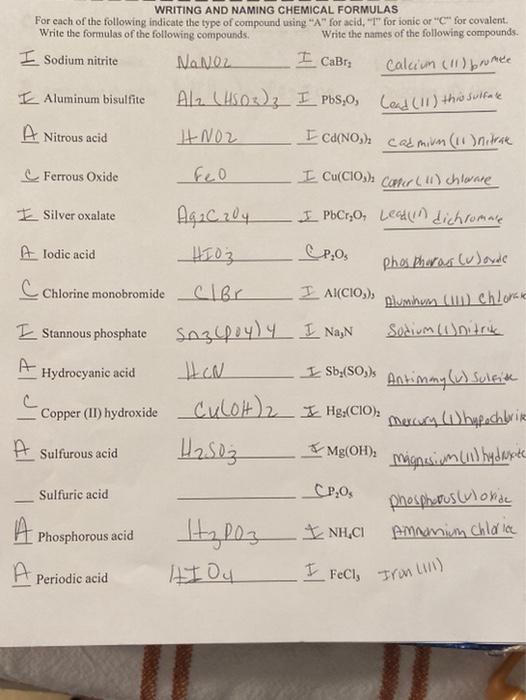 WRITING AND NAMING CHEMICAL FORMULAS
For each of the following indicate the type of compound using "A" for acid, "I" for ionic or "C" for covalent.
Write the formulas of the following compounds. Write the names of the following compounds.
I Sodium nitrite NaNO2 I CaBr₂ Calcium (II) bromide
I Aluminum bisulfite Al2 (HSO3)3 I PbS₂O₃ Lead (II) thiosulfate
A Nitrous acid HNO2 I Cd(NO₃)₂ cadmium (II) nitrate
C Ferrous Oxide FeO I Cu(ClO₃)₂ Copper (II) chlorate
I Silver oxalate Ag2C2O4 I PbCr₂O₇ Lead(II) dichromate
A Iodic acid HIO3 C P₂O₅ phosphorus (V) oxide
C Chlorine monobromide ClBr I Al(ClO₃)₃ Aluminum (III) chlorate
I Stannous phosphate Sn3(PO4)4 I Na₃N Sodium (I) nitride
A Hydrocyanic acid HCN I Sb₂(SO₃)₅ Antimony (V) sulfite
C Copper (II) hydroxide Cu(OH)2 I Hg₂(ClO)₂ mercury (I) hypochlorite
A Sulfurous acid H2SO3 I Mg(OH)₂ magnesium (II) hydroxide
Sulfuric acid C P₂O₅ phosphorus (V) oxide
A Phosphorous acid H3PO3 I NH₄Cl Ammonium chloride
A Periodic acid HIO4 I FeCl₃ Iron (III)